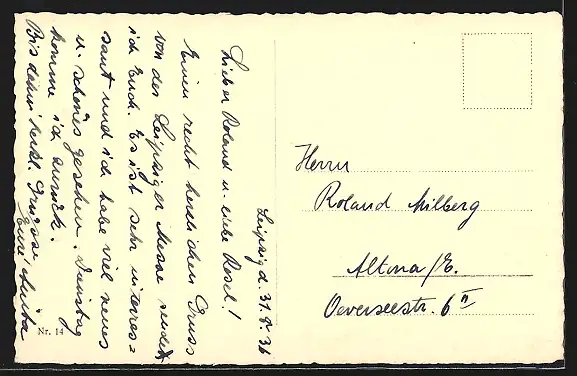 Leipzig d. 31.8.36
Lieber Roland u. liebe Resel!
Einen recht herzlichen Gruss
von der Leipziger Messe sendet
ich Euch. Es ist sehr interes=
sant und ich habe viel neues
u. schönes gesehen. Dienstag
komme ich zurück.
Bis dahin herzl. Grüsse
Eure Anita
Nr. 14
Herrn
Roland Milberg
Altona/E.
Oeverseestr. 6 II